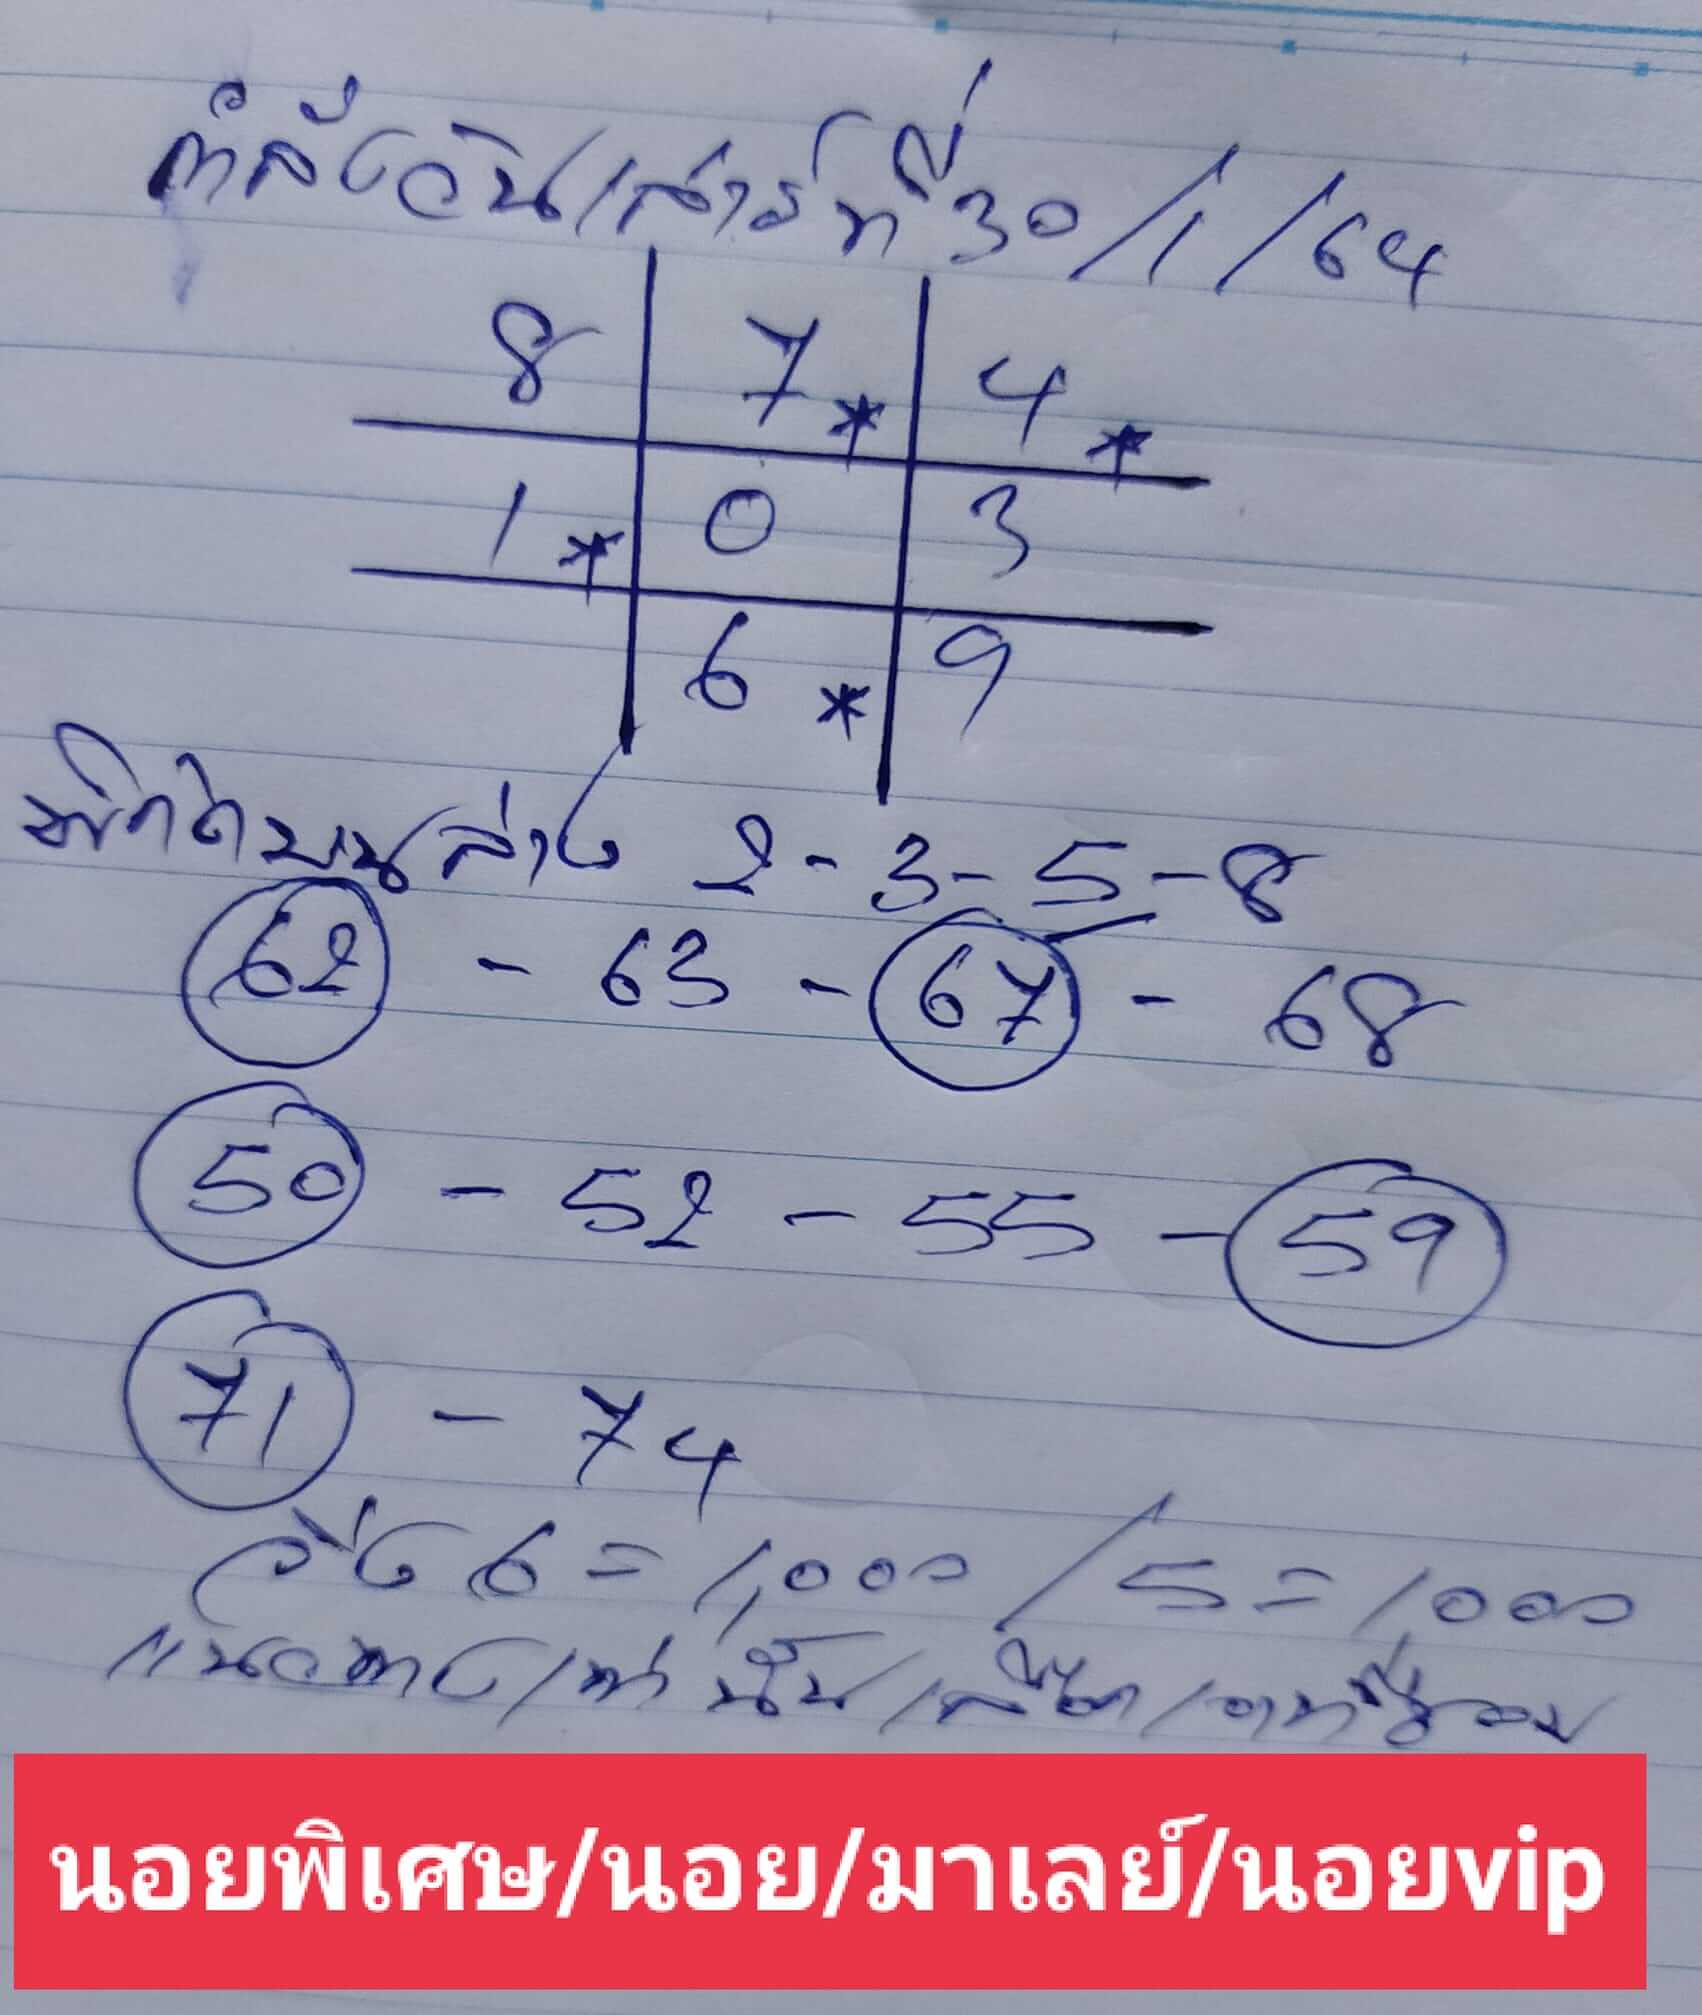 กำลังวันเสาร์ที่ 30/1/64
8 7* 4*
1* 0 3
6* 9
พิกัดบนล่าง 2-3-5-8
62 - 63 - 67 - 68
50 - 52 - 55 - 59
71 - 74
วิ่ง 6 = 1,000 / 5 = 1000
แนวทางเท่านั้น
นอยพิเศษ/นอย/มาเลย์/นอยvip